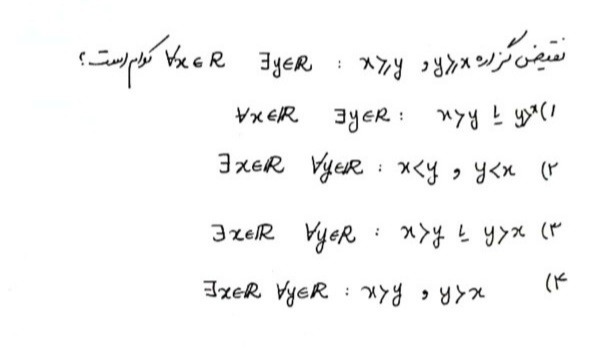 نقیض گزاره ∀x∈ℝ ∃y∈ℝ : x⩾y و y⩾x کدام است؟
۱) ∀x∈ℝ ∃y∈ℝ : x>y یا y>x
۲) ∃x∈ℝ ∀y∈ℝ : x<y و y<x
۳) ∃x∈ℝ ∀y∈ℝ : x>y یا y>x
۴) ∃x∈ℝ ∀y∈ℝ : x>y و y>x